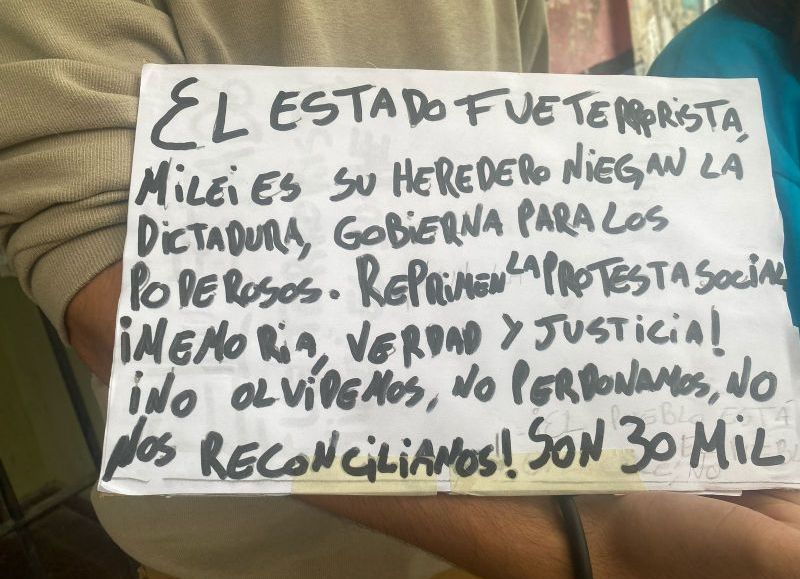 EL ESTADO FUE TERRORISTA,
MILEI ES SU HEREDERO NIEGAN LA
DICTADURA, GOBIERNA PARA LOS
PODEROSOS. REPRIMEN LA PROTESTA SOCIAL
¡MEMORIA, VERDAD Y JUSTICIA!
¡NO OLVIDEMOS, NO PERDONAMOS, NO
NOS RECONCILIAMOS! SON 30 MIL
EL PUEBLO ESTA